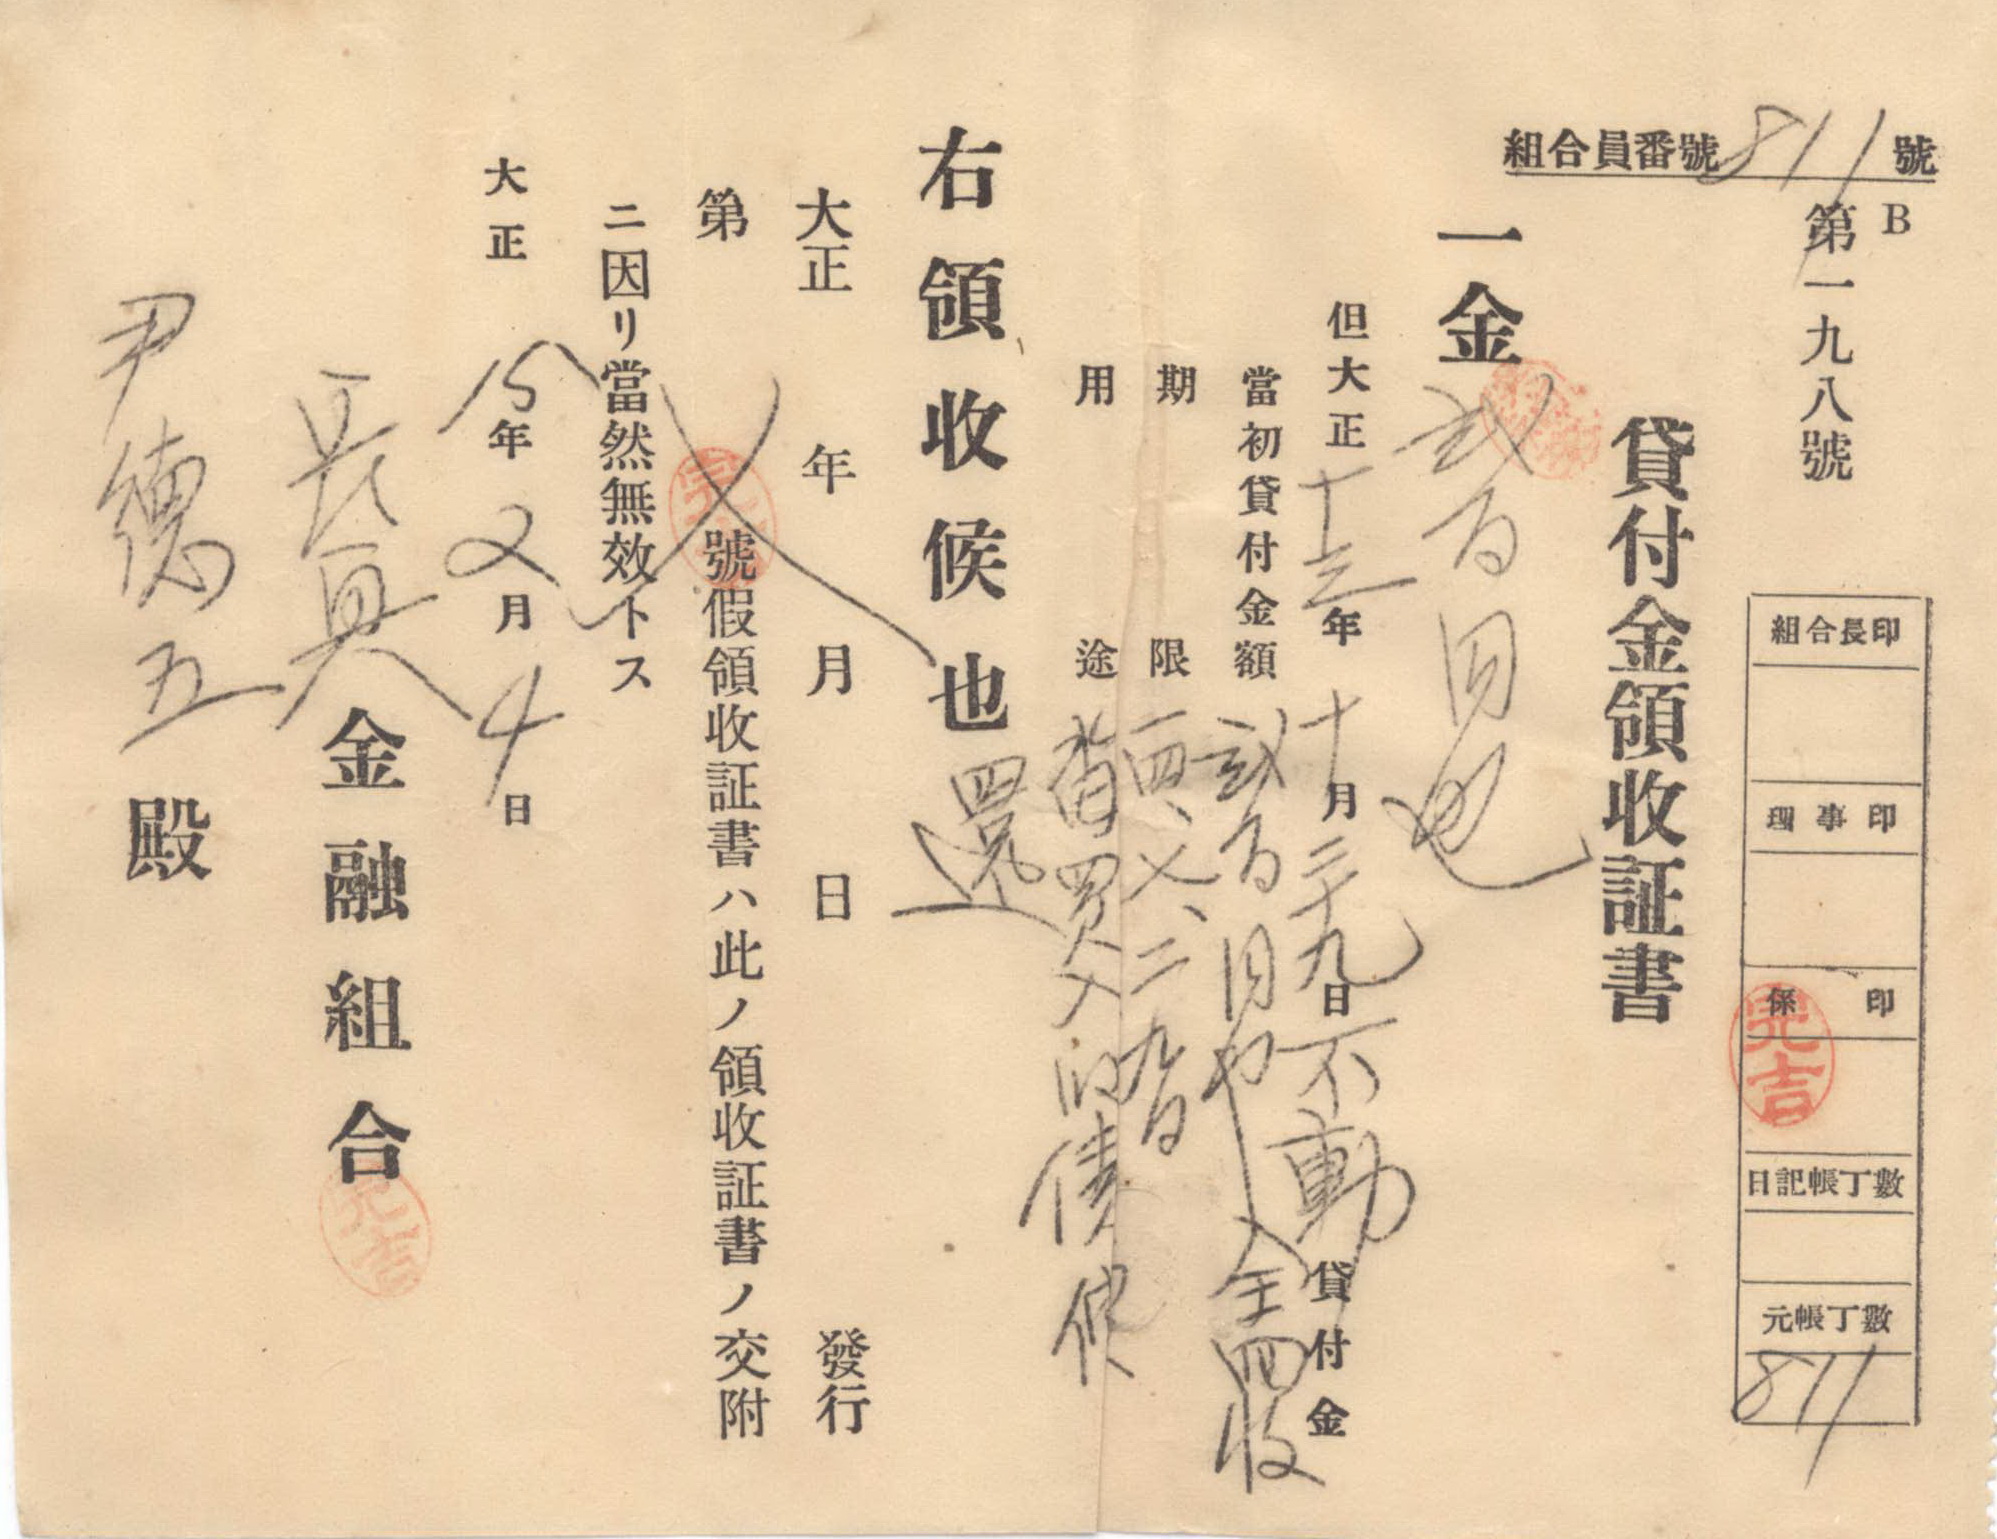 組合員番號811號
B
第一九八號
組合長印
理事印
係印
完吉
日記帳丁數
元帳丁數
811
貸付金領收証書
一金 貳百円也
但大正十三年十月二十九日不動貸付金
當初貸付金額 貳百円也 全四收
期限
用途 買入 債
還
右領收候也
大正 年 月 日 發行
第 號假領收証書ハ此ノ領收証書ノ交附
ニ因リ當然無效トス
大正15年2月4日
長具金融組合
完吉
尹德五殿